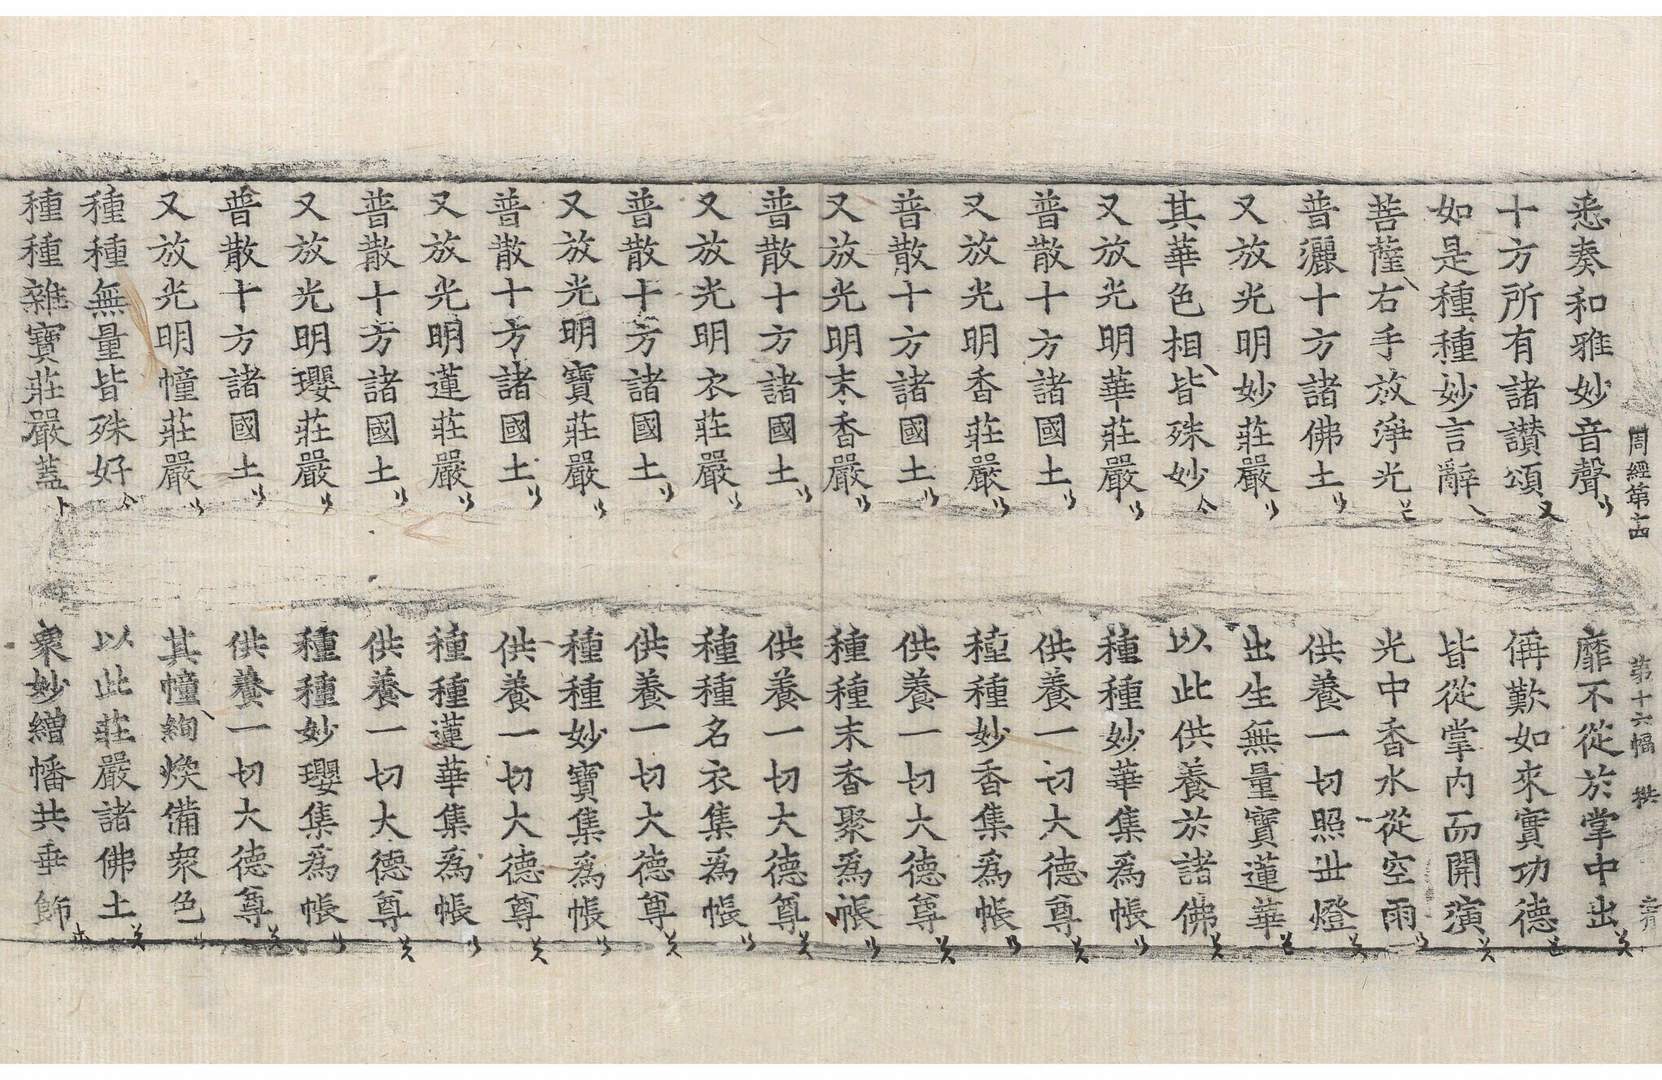 周經第十四 第十六幅
悉奏和雅妙音聲 靡不從於掌中出
十方所有諸讃頌 偁歎如來實功德
如是種種妙言辭 皆從掌內而開演
菩薩右手放淨光 光中香水從空雨
普灑十方諸佛土 供養一切照世燈
又放光明妙莊嚴 出生無量寶蓮華
其華色相皆殊妙 以此供養於諸佛
又放光明華莊嚴 種種妙華集爲帳
普散十方諸國土 供養一切大德尊
又放光明香莊嚴 種種妙香集爲帳
普散十方諸國土 供養一切大德尊
又放光明末香嚴 種種末香聚爲帳
普散十方諸國土 供養一切大德尊
又放光明衣莊嚴 種種名衣集爲帳
普散十方諸國土 供養一切大德尊
又放光明寶莊嚴 種種妙寶集爲帳
普散十方諸國土 供養一切大德尊
又放光明蓮莊嚴 種種蓮華集爲帳
普散十方諸國土 供養一切大德尊
又放光明瓔莊嚴 種種妙瓔集爲帳
普散十方諸國土 供養一切大德尊
又放光明幢莊嚴 其幢絢煥備衆色
種種無量皆殊好 以此莊嚴諸佛土
種種雜寶莊嚴蓋 衆妙繒幡共垂飾